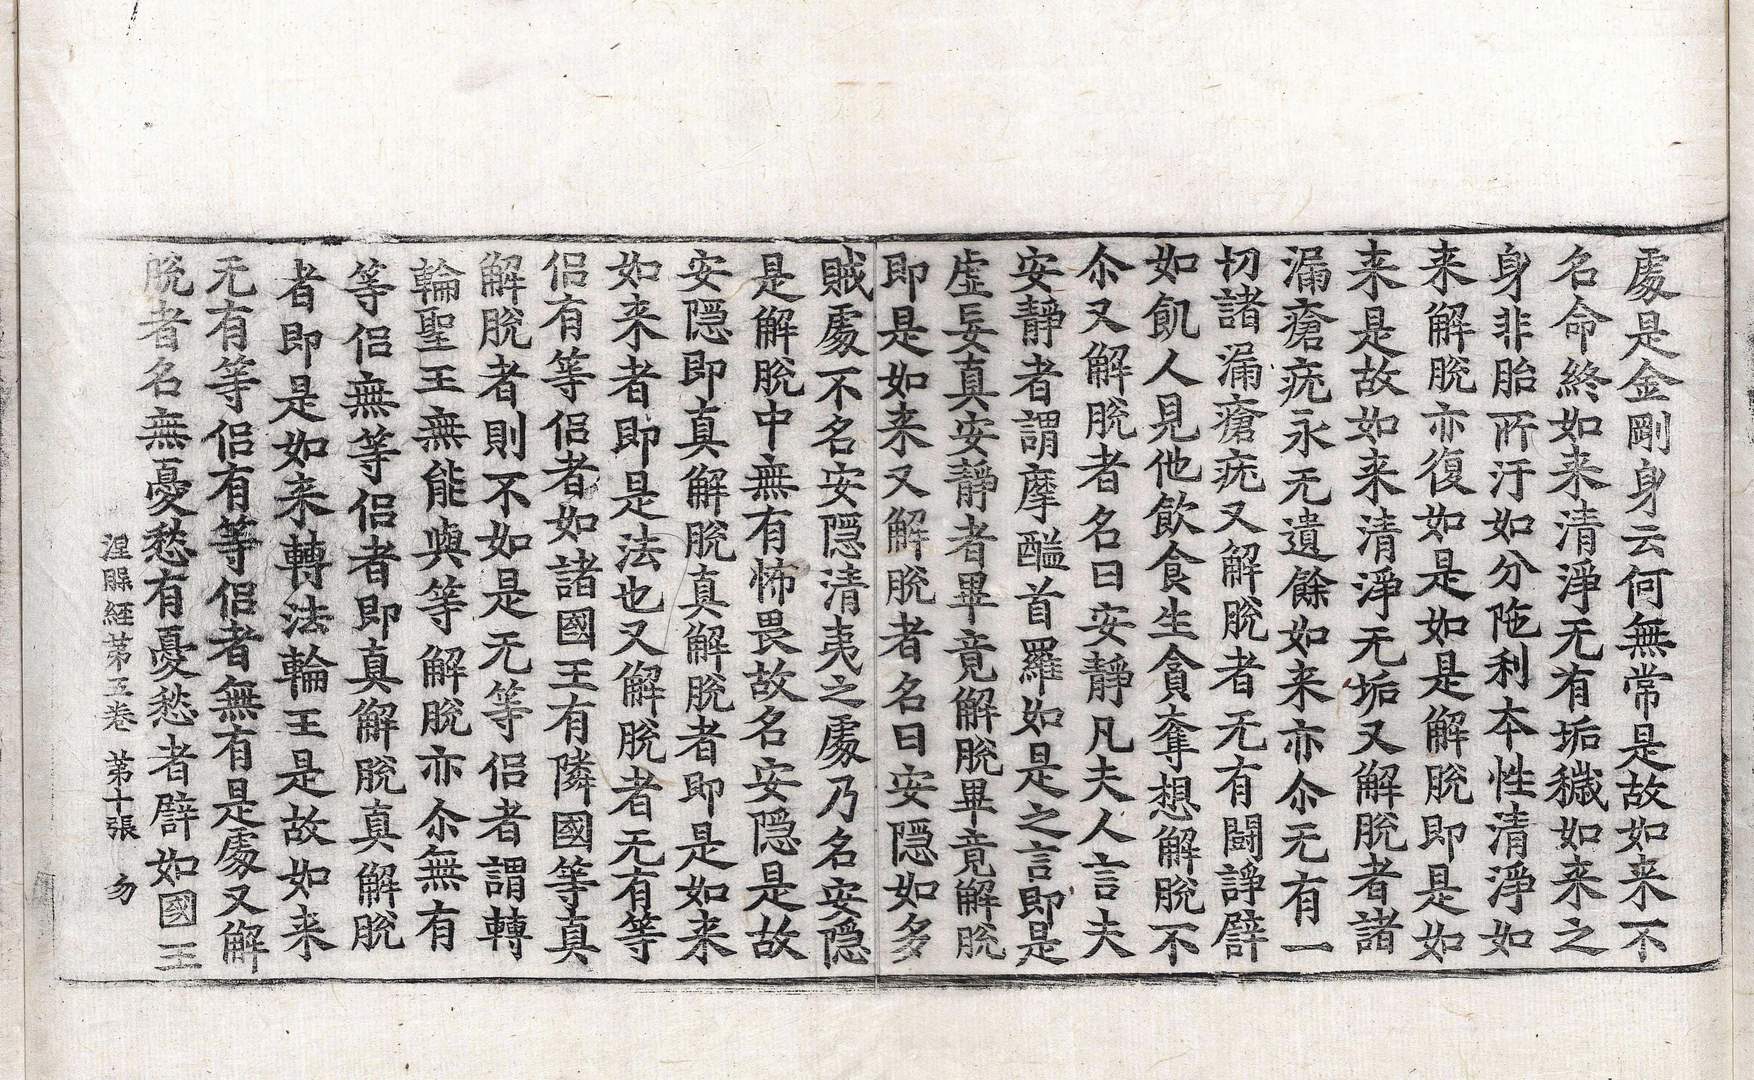 處是金剛身云何無常是故如来不
名命終如来清淨无有垢穢如来之
身非胎所汙如分陁利本性清淨如
来解脫亦復如是如是解脫即是如
来是故如来清淨无垢又解脫者諸
漏瘡疣永无遺餘如来亦尒无有一
切諸漏瘡疣又解脫者无有鬪諍譬
如飢人見他飲食生貪奪想解脫不
尒又解脫者名曰安靜凡夫人言夫
安靜者謂摩醯首羅如是之言即是
虛妄真安靜者畢竟解脫畢竟解脫
即是如来又解脫者名曰安隱如多
賊處不名安隱清夷之處乃名安隱
是解脫中無有怖畏故名安隱是故
安隱即真解脫真解脫者即是如来
如来者即是法也又解脫者无有等
侶有等侶者如諸國王有隣國等真
解脫者則不如是无等侶者謂轉
輪聖王無能與等解脫亦尒無有
等侶無等侶者即真解脫真解脫
者即是如来轉法輪王是故如来
无有等侶有等侶者無有是處又解
脫者名無憂愁有憂愁者譬如國王
涅槃經苐五卷 苐十張